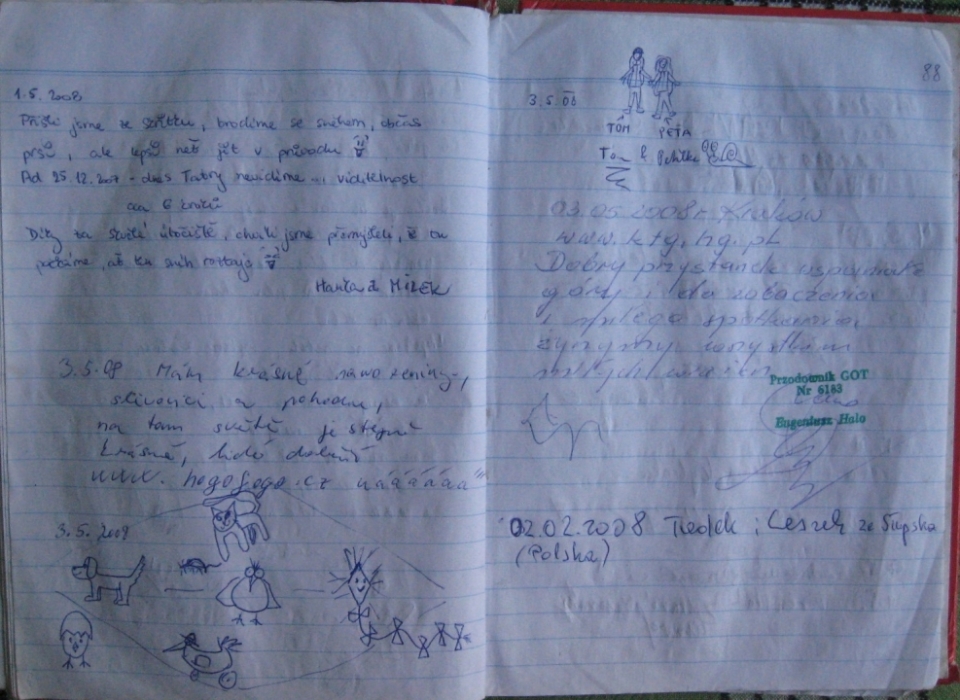 1.5.2008
Přišli jsme ze , brodíme se sněhem, občas
prší, ale lepší než jít v průvodu
Od 25.12.2007 - dnes Tatry nevidíme ... viditelnost
cca 6 kroků
Díky za útočiště, chvíli jsme přemýšleli, že tu
počkáme, až ten sníh roztaje
Hanka & MÍREK
3.5.08 Mám krásné narozeniny,
slivovici a pohodu,
na tom světě je stejně
krásně, lidé dobří
www.hogofogo.cz
3.5.2008
88
3.5.08
TOM PÉŤA
Tom &
03.05.2008 r. Kraków
www.ktg.hg.pl
Dobry przystanek wspaniałe
góry i do zobaczenia
i miłego spotkania
życzymy wszystkim
Przodownik GOT
Nr 6183
Eugeniusz Halo
02.02.2008 i Leszek ze Słupska
(Polska)